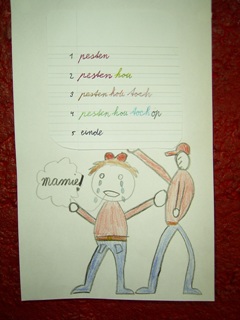 1 pesten
2 pesten hou
3 pesten hou toch
4 pesten hou toch op
5 einde
mamie!